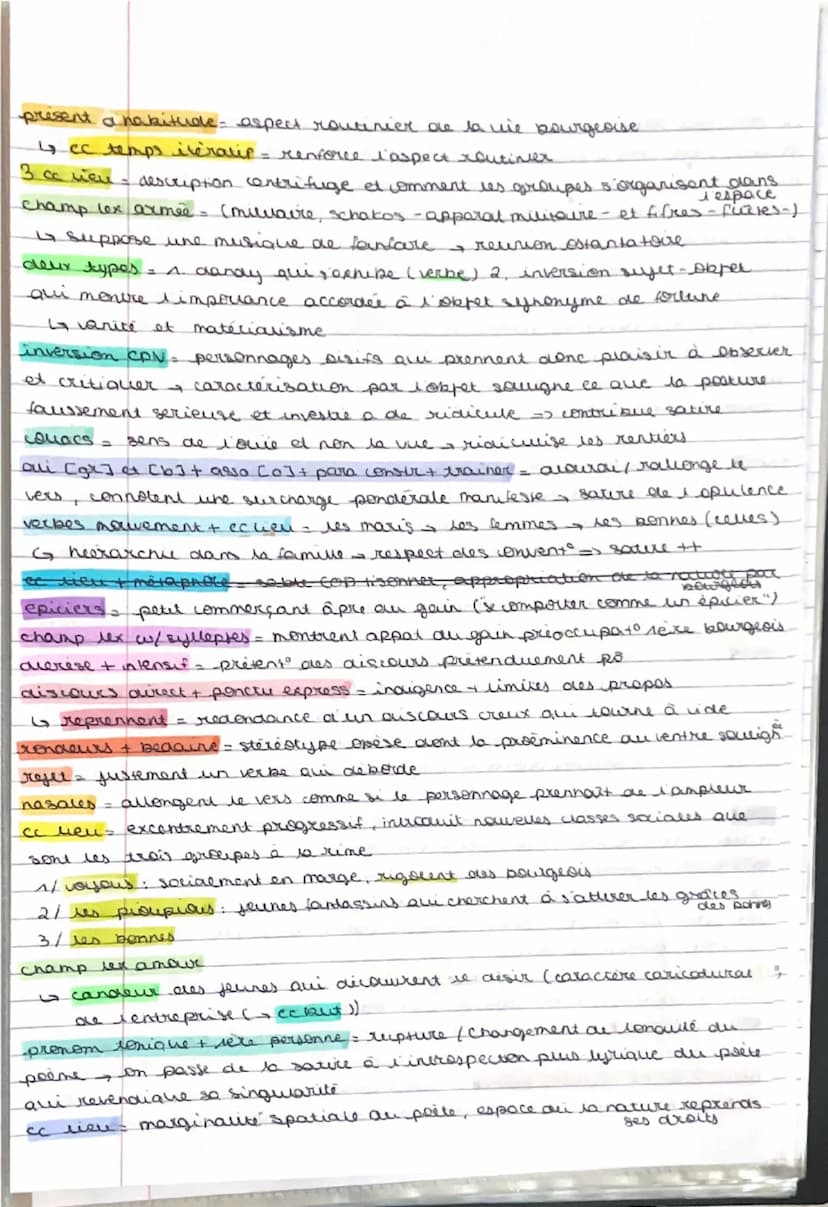 présent d'habitude = aspect routinier de la vie bourgeoise
↳ cc temps itératif = renforce l'aspect routinier
3 cc lieu = description centrifuge et comment les groupes s'organisent dans l'espace
champ lex armée = (militaire, schakos - apparat militaire - et fifres - flûtes -)
↳ suppose une musique de fanfare → réunion ostantatoire
deux types = 1. dandy qui s'exhibe (verbe) 2. inversion sujet-objet
qui montre l'importance accordée à l'objet synonyme de fortune
↳ vanité et matérialisme
inversion CDN = personnages oisifs qui prennent donc plaisir à observer
et critiquer → caractérisation par l'objet souligne ce que la posture
faussement sérieuse et investie a de ridicule => contribue satire
couacs = sens de l'ouïe et non la vue → ridiculise les rentiers
alli [gr] et [b] + asso [o] + para constr + trainer = alourdi / rallonge le
vers, connotent une surcharge pondérale manifeste → satire de l'opulence
verbes mouvement + cc lieu = les maris → les femmes → les bonnes (celles)
↳ hiérarchie dans la famille → respect des convent° => satire ++
cc lieu + métaphore = sable COD tisonner, appropriation de la nature par bourgeois
epiciers = petit commerçant âpre au gain ("se comporter comme un épicier")
champ lex w/ syllepses = montrent appat du gain préoccupat° 1ère bourgeois
diérèse + intensif = prétent° des discours prétenduement po
discours direct + ponctu express = indigence + limites des propos
↳ reprennent = redondance d'un discours creux qui tourne à vide
rondeurs + bedaine = stéréotype obèse dont la proéminence du ventre soulign ée
rejet = justement un verbe qui déborde
nasales = allongent le vers comme si le personnage prennait de l'ampleur
cc lieu = excentrement progressif, introduit nouvelles classes sociales que
sont les trois groupes à la rime
1/ voyous : socialement en marge, rigolent des bourgeois
2/ les pioupious : jeunes fantassins qui cherchent à s'attirer les grâces des bonnes
3/ les bonnes
champ lex amour
↳ candeur des jeunes qui découvrent le désir (caractère caricatural
de l'entreprise (→ cc but))
pronom tonique + 1ère personne = rupture / changement de tonalité du
poème → on passe de la satire à l'introspection plus lyrique du poète
qui revendique sa singularité
cc lieu = marginalité spatiale du poète, espace où la nature reprends ses droits